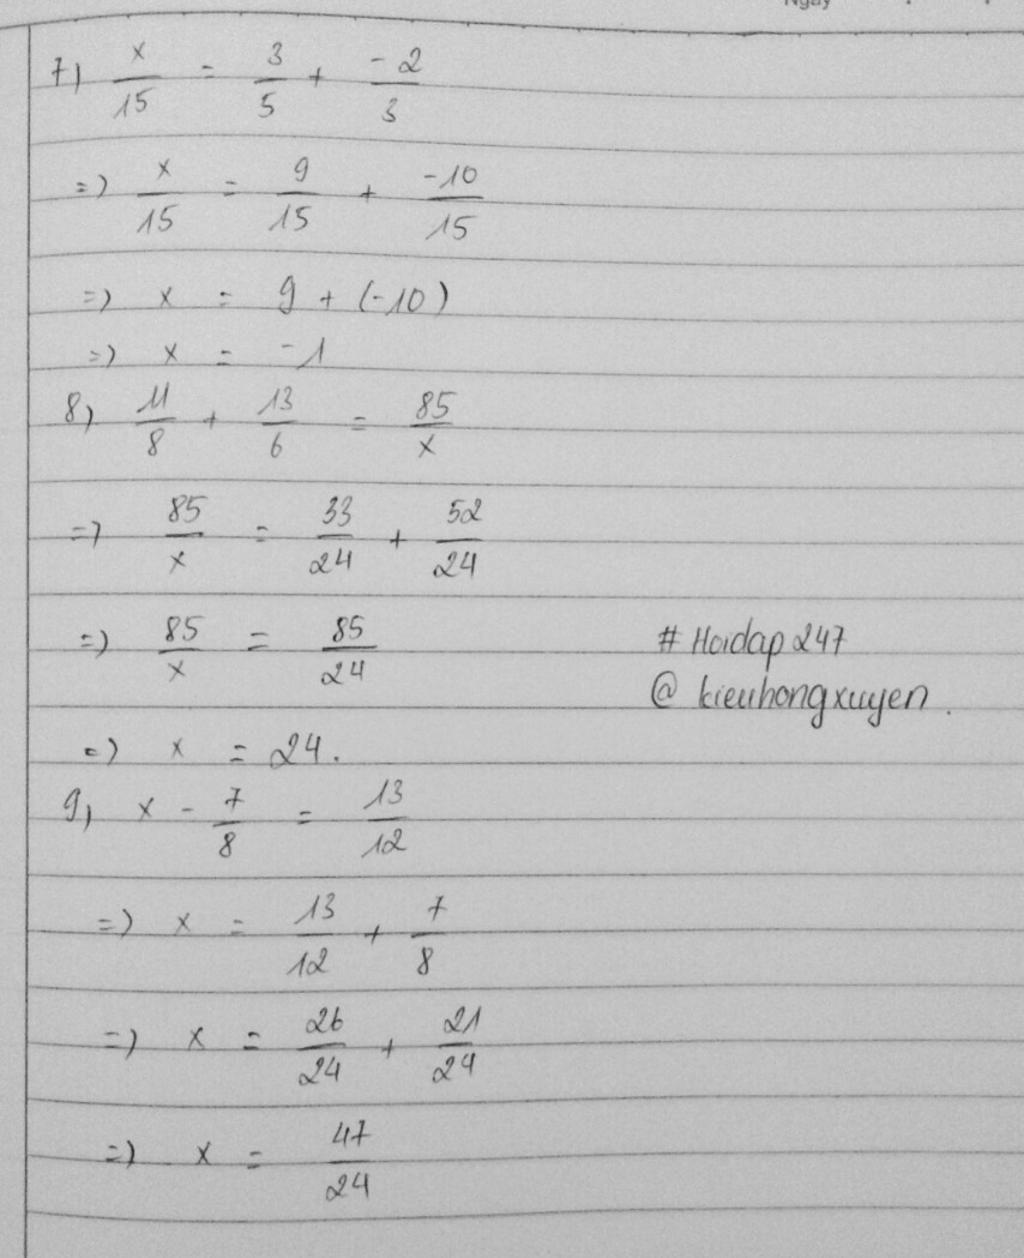 Ngày
7) x/15 = 3/5 + -2/3
=) x/15 = 9/15 + -10/15
=) x = 9 + (-10)
=) x = -1
8) 11/8 + 13/6 = 85/x
=) 85/x = 33/24 + 52/24
=) 85/x = 85/24
# Hoidap 247
@ kieuhongxuyen.
=) x = 24.
9) x - 7/8 = 13/12
=) x = 13/12 + 7/8
=) x = 26/24 + 21/24
=) x = 47/24